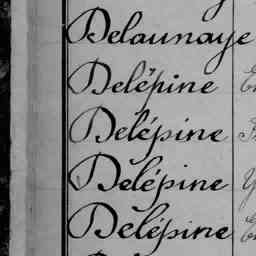 Delaunaye
Delépine
Delépine
Delépine
Delépine